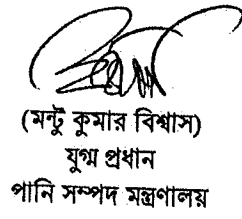 (মন্টু কুমার বিশ্বাস)
যুগ্ম প্রধান
পানি সম্পদ মন্ত্রণালয়